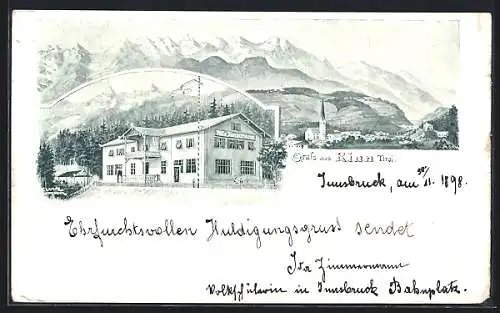 Gruß aus Rinn Tirol.
Innsbruck, am 30/11. 1898.
Ehrfurchtsvollen Huldigungsgruss sendet
Ida Zimmermann
Volksschülerin in Innsbruck Bahnplatz.